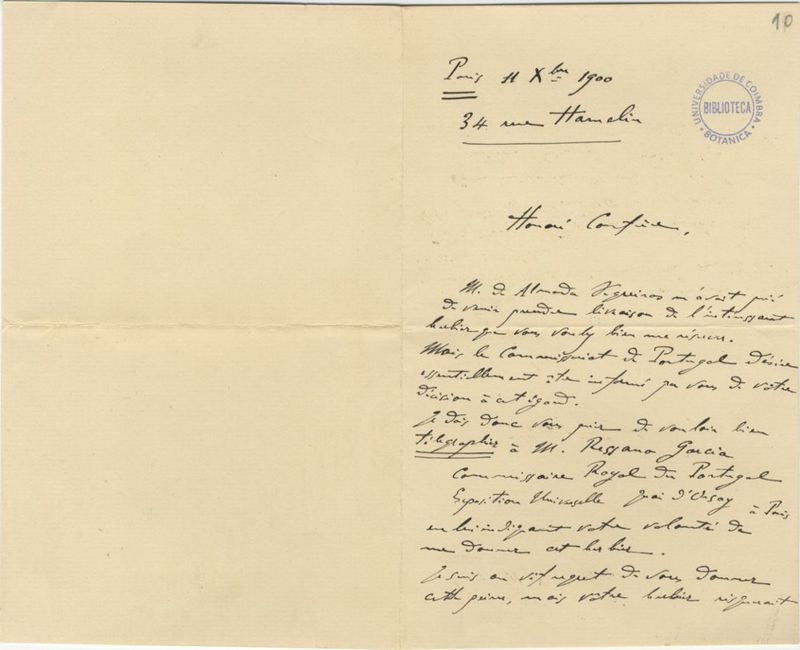 10
Paris 11 Xbre 1900
34 rue Hamelin
UNIVERSIDADE DE COIMBRA
BIBLIOTECA
BOTANICA
Honoré Confrère,
M. de Almada Negreiros m'avait prié
de venir prendre livraison de l'intéressant
herbier que vous voulez bien me réserver.
Mais le Commissariat de Portugal désire
essentiellement être informé par vous de votre
décision à cet égard.
Je dois donc vous prier de vouloir bien
télégraphier à M. Ressano Garcia
Commissaire Royal du Portugal
Exposition Universelle Quai d'Orsay à Paris
en lui indiquant votre volonté de
me donner cet herbier.
Je suis au vif regret de vous donner
cette peine, mais votre herbier risquerait